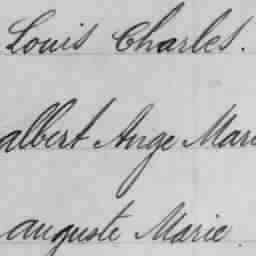 Louis Charles.
albert Ange Mari
auguste Marie.